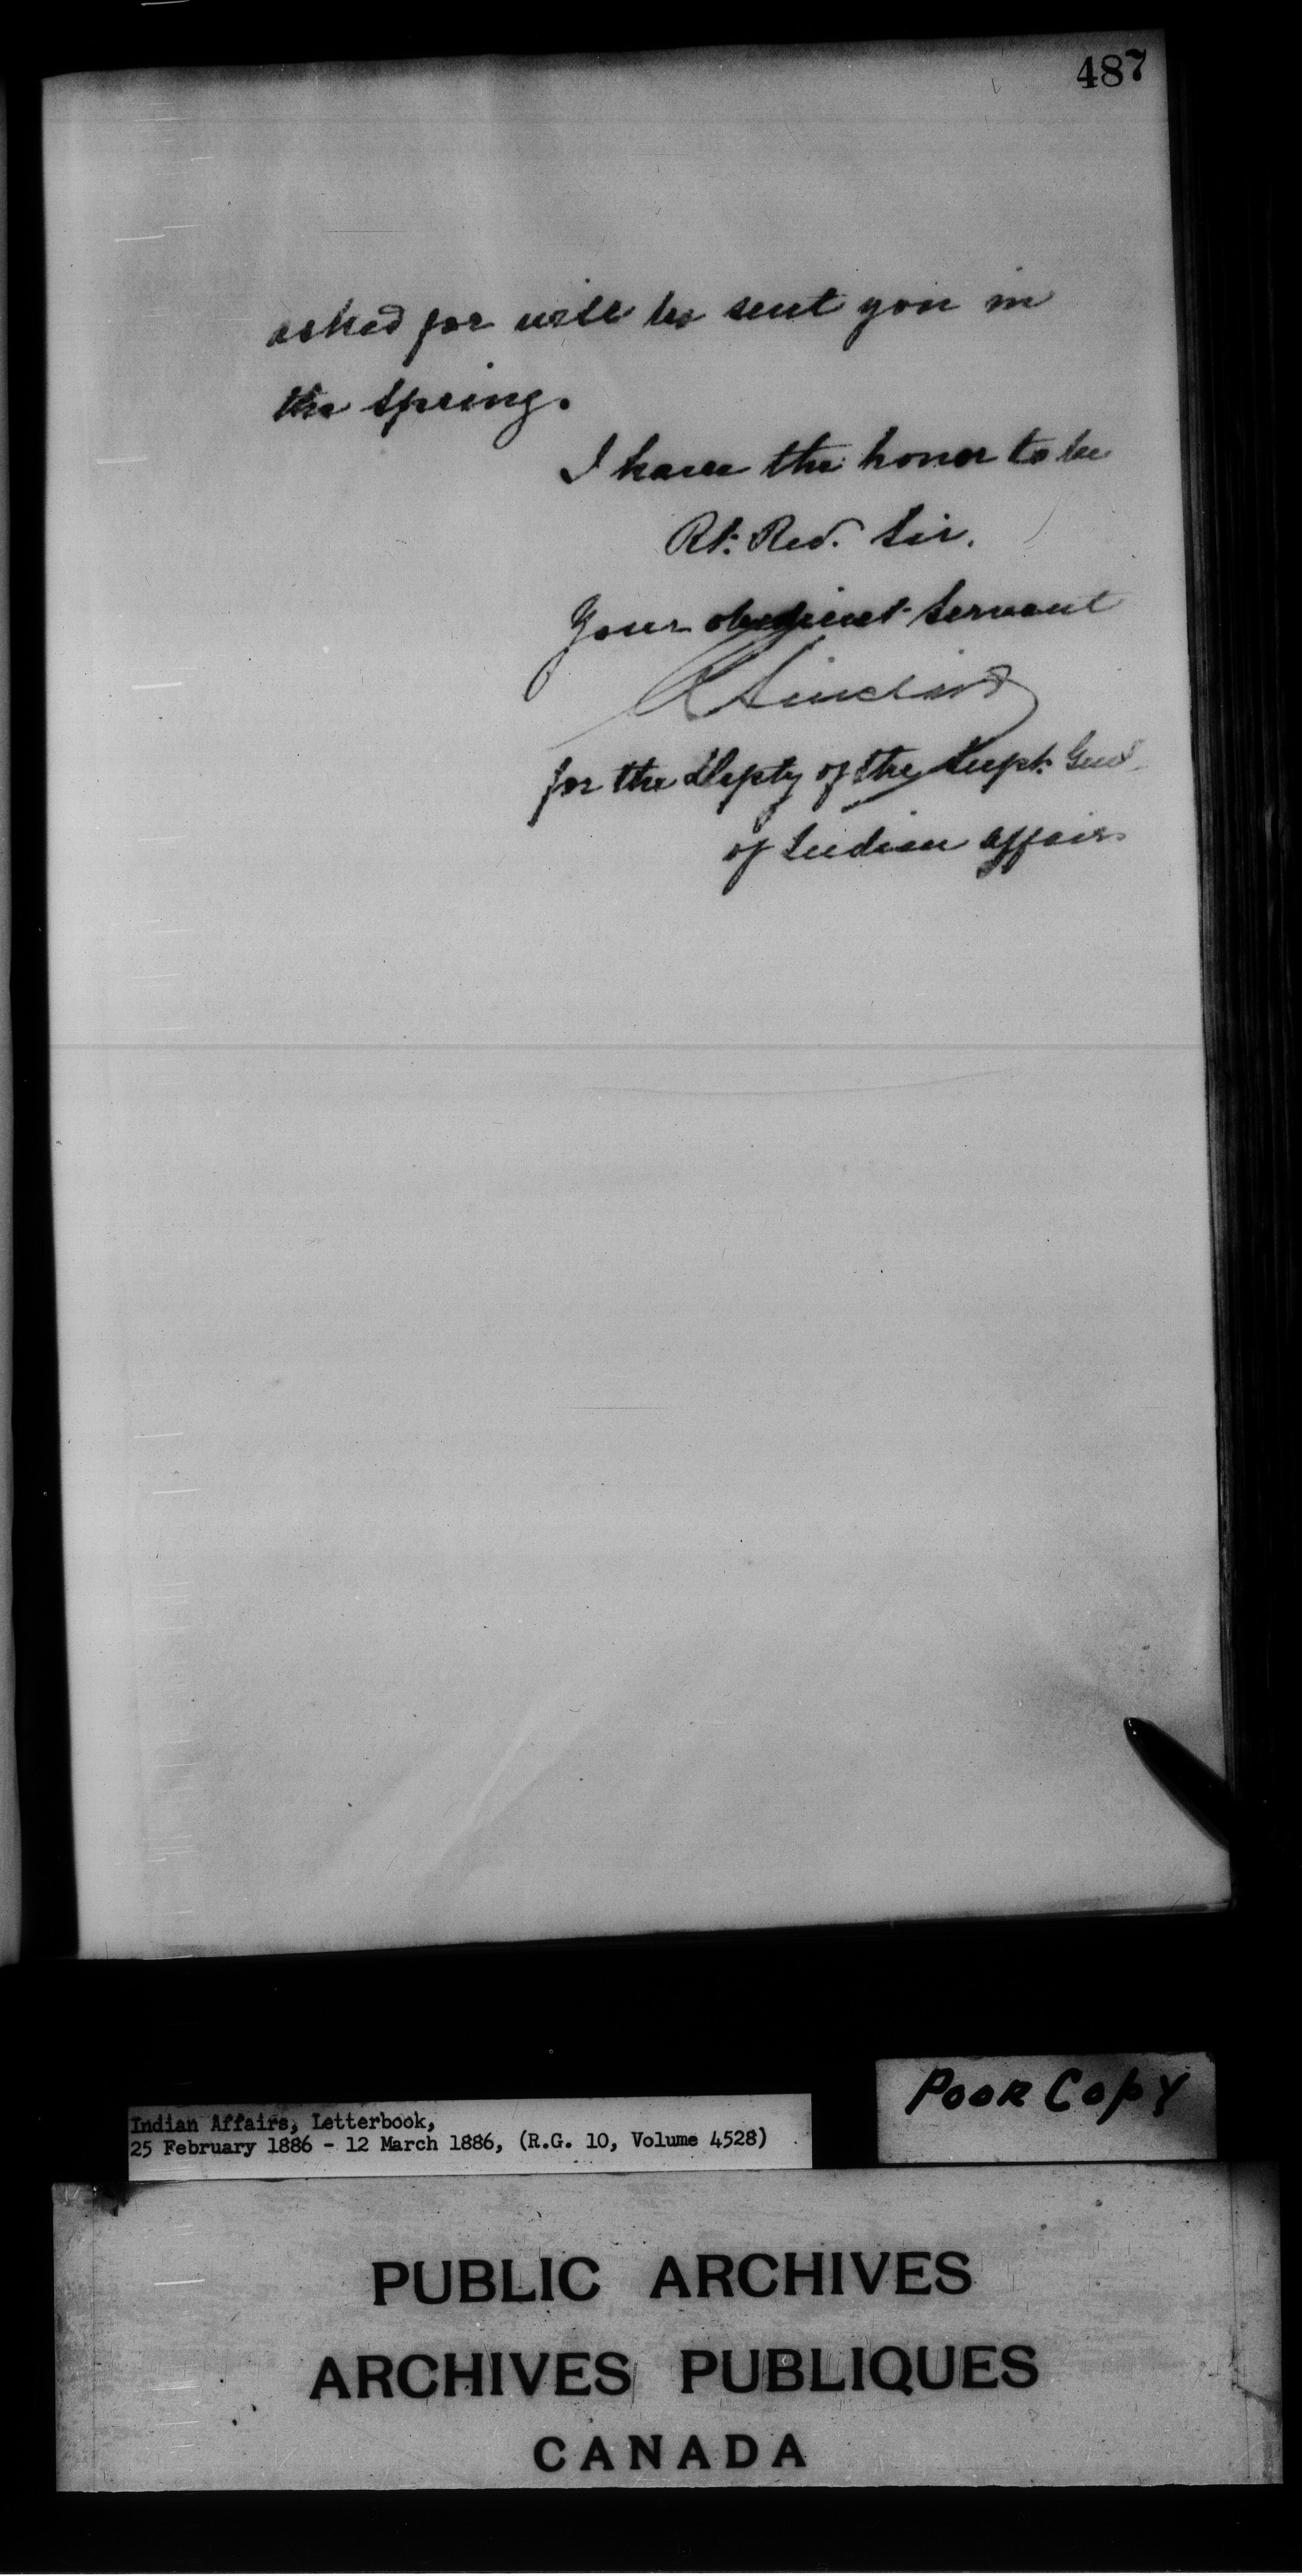 487
asked for will be sent you in
the spring.
I have the honor to be
Rt. Rev. Sir.
Your obedient servant
R Sinclair
for the Depty of the Supt. Genl
of Indian Affairs
Poor Copy
Indian Affairs, Letterbook,
25 February 1886 - 12 March 1886, (R.G. 10, Volume 4528)
PUBLIC ARCHIVES
ARCHIVES PUBLIQUES
CANADA